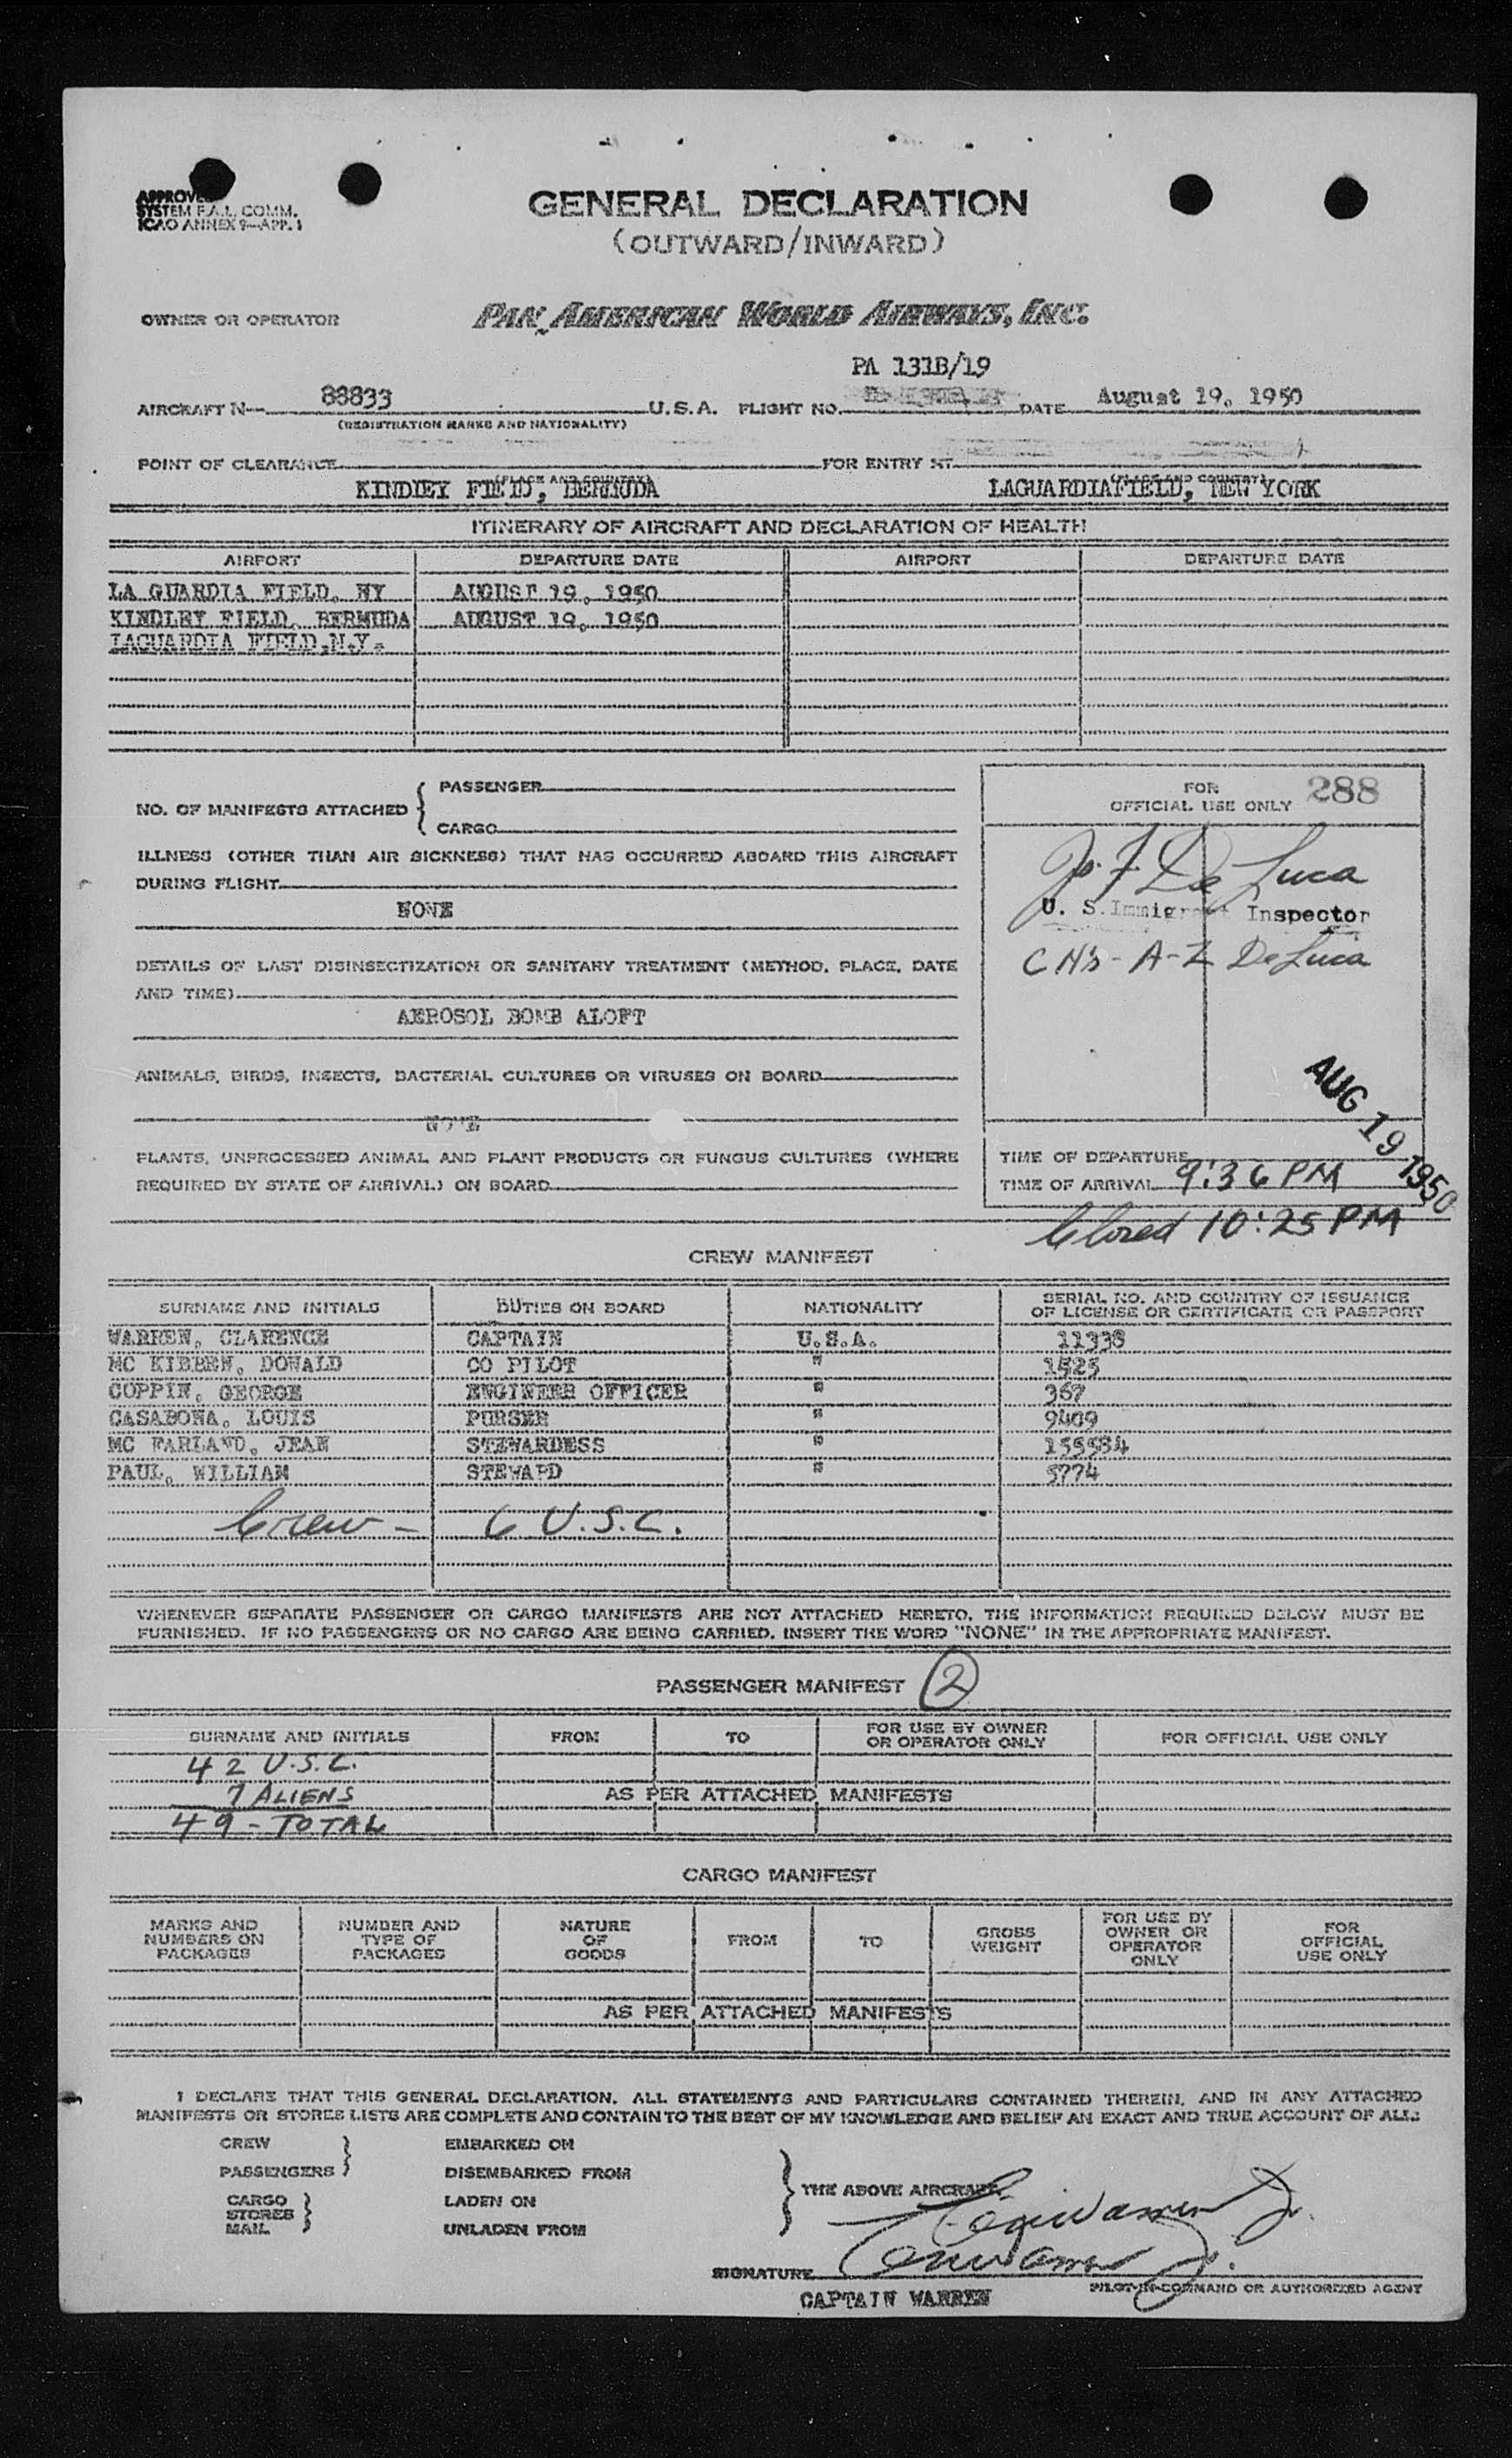 APPROVED
SYSTEM F.A.L. COMM.
ICAO ANNEX 9—APP. 1
GENERAL DECLARATION
(OUTWARD/INWARD)
OWNER OR OPERATOR PAN AMERICAN WORLD AIRWAYS, INC.
PA 131B/19
AIRCRAFT N— 88833 U.S.A. FLIGHT NO. DATE August 19, 1950
(REGISTRATION MARKS AND NATIONALITY)
POINT OF CLEARANCE FOR ENTRY AT
KINDLEY FIELD, BERMUDA LAGUARDIAFIELD, NEW YORK
(PLACE AND COUNTRY) (PLACE AND COUNTRY)
ITINERARY OF AIRCRAFT AND DECLARATION OF HEALTH
AIRPORT DEPARTURE DATE AIRPORT DEPARTURE DATE
LA GUARDIA FIELD, NY AUGUST 19, 1950
KINDLEY FIELD, BERMUDA AUGUST 19, 1950
LAGUARDIA FIELD,N.Y.
NO. OF MANIFESTS ATTACHED { PASSENGER
CARGO
ILLNESS (OTHER THAN AIR SICKNESS) THAT HAS OCCURRED ABOARD THIS AIRCRAFT
DURING FLIGHT
NONE
DETAILS OF LAST DISINSECTIZATION OR SANITARY TREATMENT (METHOD, PLACE, DATE
AND TIME)
AEROSOL BOMB ALOFT
ANIMALS, BIRDS, INSECTS, BACTERIAL CULTURES OR VIRUSES ON BOARD
NONE
PLANTS, UNPROCESSED ANIMAL AND PLANT PRODUCTS OR FUNGUS CULTURES (WHERE
REQUIRED BY STATE OF ARRIVAL) ON BOARD
FOR
OFFICIAL USE ONLY 288
De Luca
U. S. Immigrant Inspector
A-Z DeLuca
AUG 19 1950
TIME OF DEPARTURE
TIME OF ARRIVAL 9:36 PM
Closed 10:25 PM
CREW MANIFEST
SURNAME AND INITIALS DUTIES ON BOARD NATIONALITY SERIAL NO. AND COUNTRY OF ISSUANCE
OF LICENSE OR CERTIFICATE OR PASSPORT
WARREN, CLARENCE CAPTAIN U.S.A. 11338
MC KIBBEN, DONALD CO PILOT " 1525
COPPIN, GEORGE ENGINEER OFFICER " 367
CASABONA, LOUIS PURSER " 9409
MC FARLAND, JEAN STEWARDESS " 155584
PAUL, WILLIAM STEWARD " 5774
Crew - 6 U.S.C.
WHENEVER SEPARATE PASSENGER OR CARGO MANIFESTS ARE NOT ATTACHED HERETO, THE INFORMATION REQUIRED BELOW MUST BE
FURNISHED. IF NO PASSENGERS OR NO CARGO ARE BEING CARRIED, INSERT THE WORD "NONE" IN THE APPROPRIATE MANIFEST.
PASSENGER MANIFEST 2
SURNAME AND INITIALS FROM TO FOR USE BY OWNER
OR OPERATOR ONLY FOR OFFICIAL USE ONLY
42 U.S.C.
7 ALIENS AS PER ATTACHED MANIFESTS
49 - TOTAL
CARGO MANIFEST
MARKS AND
NUMBERS ON
PACKAGES
NUMBER AND
TYPE OF
PACKAGES
NATURE
OF
GOODS
FROM
TO
GROSS
WEIGHT
FOR USE BY
OWNER OR
OPERATOR
ONLY
FOR
OFFICIAL
USE ONLY
AS PER ATTACHED MANIFESTS
I DECLARE THAT THIS GENERAL DECLARATION, ALL STATEMENTS AND PARTICULARS CONTAINED THEREIN, AND IN ANY ATTACHED
MANIFESTS OR STORES LISTS ARE COMPLETE AND CONTAIN TO THE BEST OF MY KNOWLEDGE AND BELIEF AN EXACT AND TRUE ACCOUNT OF ALL:
CREW EMBARKED ON
PASSENGERS } DISEMBARKED FROM
THE ABOVE AIRCRAFT
CARGO LADEN ON
STORES }
MAIL UNLADEN FROM
SIGNATURE
CAPTAIN WARREN PILOT-IN-COMMAND OR AUTHORIZED AGENT